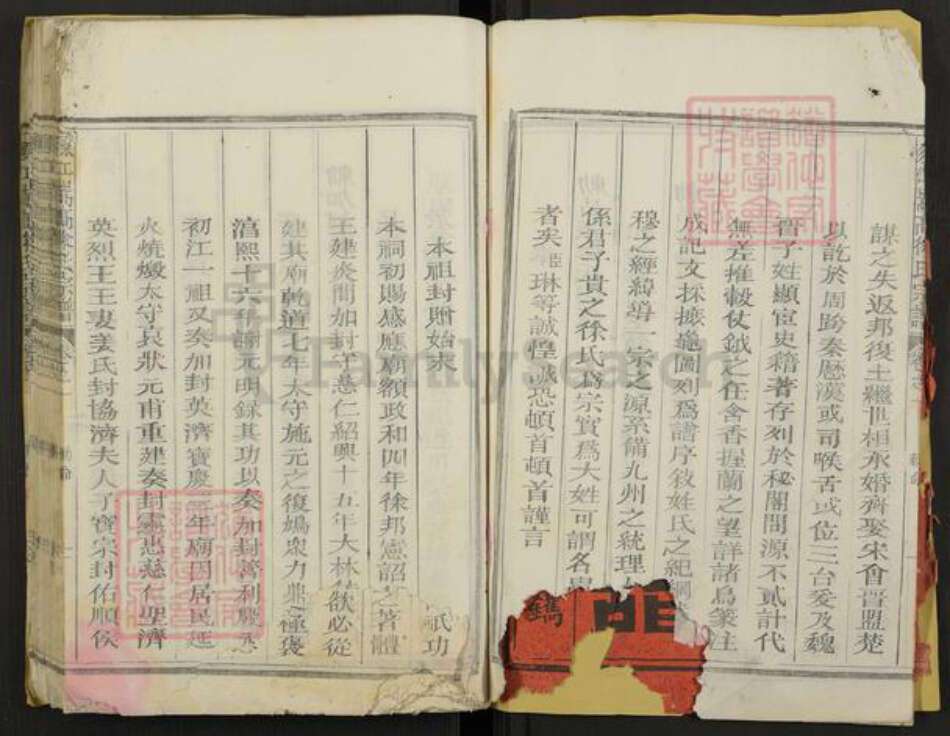 謀之失返邦復土繼世相承婚齊娶宋會晉盟楚
以訖於周跨秦歷漢或司喉舌或位三台爰及魏
晉子姓顯宦史籍著存列於秘閣間源不貳計代
無差推轂仗鉞之任含香握蘭之望詳諸鳥篆注
成記文採摭龜圖列爲譜序敘姓氏之紀綱
穆之經緯導一宗之源系備九州之統理
係君子貴之徐氏爲宗實爲大姓可謂名
者矣臣琳等誠惶誠恐頓首頓首謹言
鐫
本祖封贈始末
本祠初賜感應廟額政和四年徐邦憲詔
祇功
著體
王建炎間加封守慈仁紹興十五年大林欲必從
建其廟乾道七年太守施元之復鳩衆力鼎極褒
淳熙十六年謝元明錄其功以奏加封善利嚴
初江一祖又奏加封英濟寶慶 年廟因居民延
火燒燬太守袁狀元甫重建奏封靈惠慈仁聖濟
英烈王王妻姜氏封協濟夫人了寶宗封佑順侯
FamilySearch